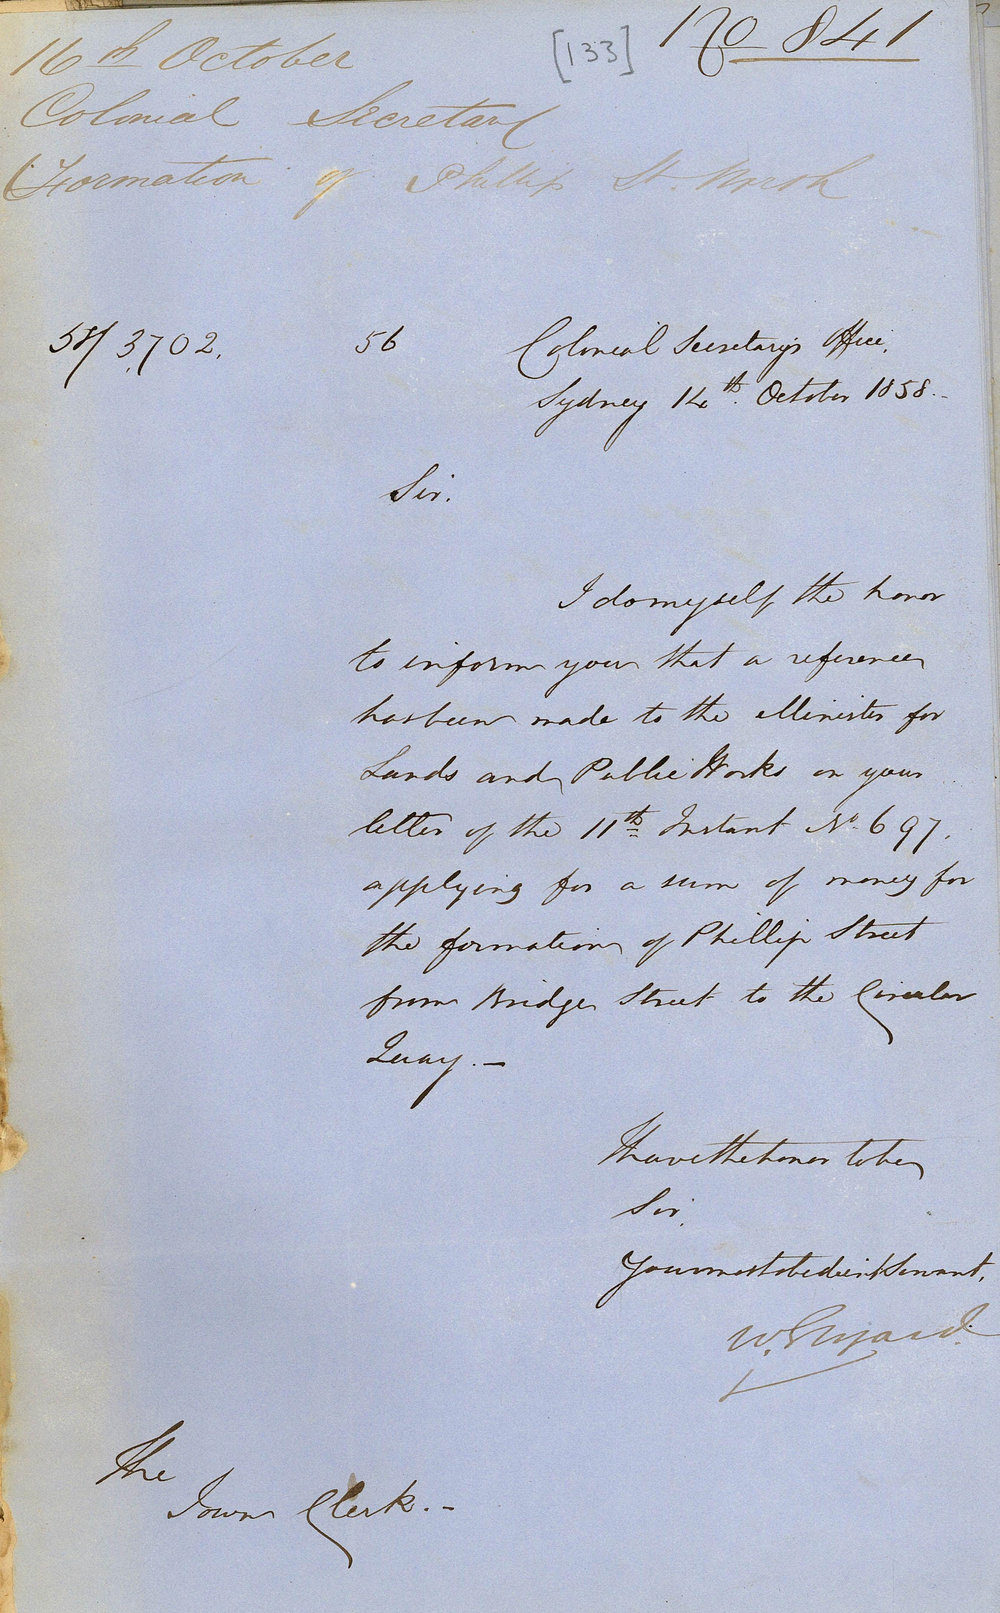 16th October
[133]
No 841
Colonial Secretary
Formation of Phillip St. North
58/3702.
56
Colonial Secretary's Office,
Sydney 14th. October 1858.
Sir.
I do myself the honor
to inform you that a reference
has been made to the Minister for
Lands and Public Works on your
letter of the 11th Instant No. 697.
applying for a sum of money for
the formation of Phillip Street
from Bridge Street to the Circular
Quay. —
I have the honor to be
Sir,
Your most obedient Servant,
W.
The
Town Clerk. -